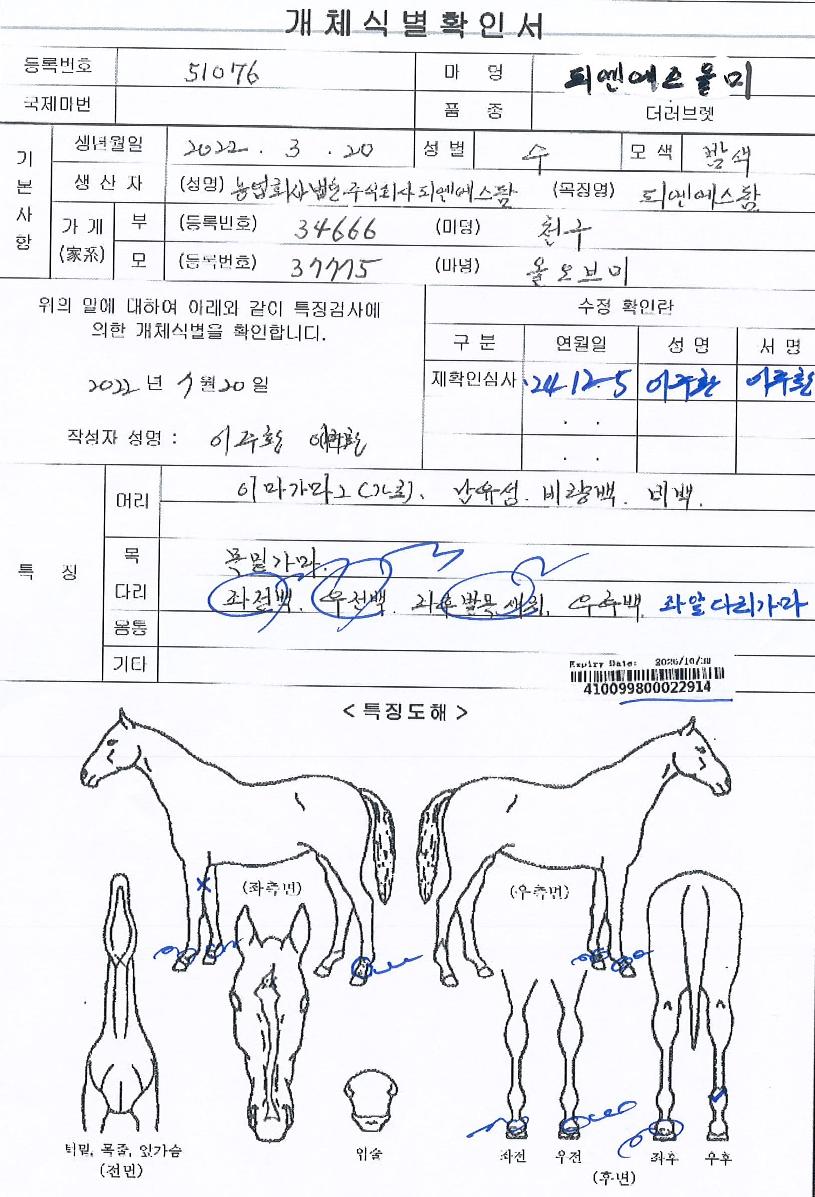 개체식별확인서
등록번호 51076 마 명 피엔에스올미
국제마번 품 종 더러브렛
기본사항
생년월일 2022 . 3 . 20 성별 수 모색 갈색
생산자 (성명) 농업회사법인주식회사피엔에스팜 (목장명) 피엔에스팜
가계 (家系) 부 (등록번호) 34666 (마명) 철구
모 (등록번호) 37775 (마명) 올오브미
위의 말에 대하여 아래와 같이 특징검사에
의한 개체식별을 확인합니다.
2022 년 월 20 일
작성자 성명 : 이주환 이주환
수정 확인란
구 분 연월일 성 명 서 명
재확인심사 '24.12.5 이주환 이주환
. .
. .
특 징
머리 이마가마2(가로), 비량백. 비백.
목 목밑가마.
다리 좌전백. 우전백. 좌후발목 우후백 좌앞다리가마
몸통
기타
Expiry Date: 2026/10/30
410099800022914
< 특징도해 >
(좌측면)
(우측면)
턱밑, 목줄, 앞가슴
(전면)
위술
좌전 우전 좌후 우후
(후면)